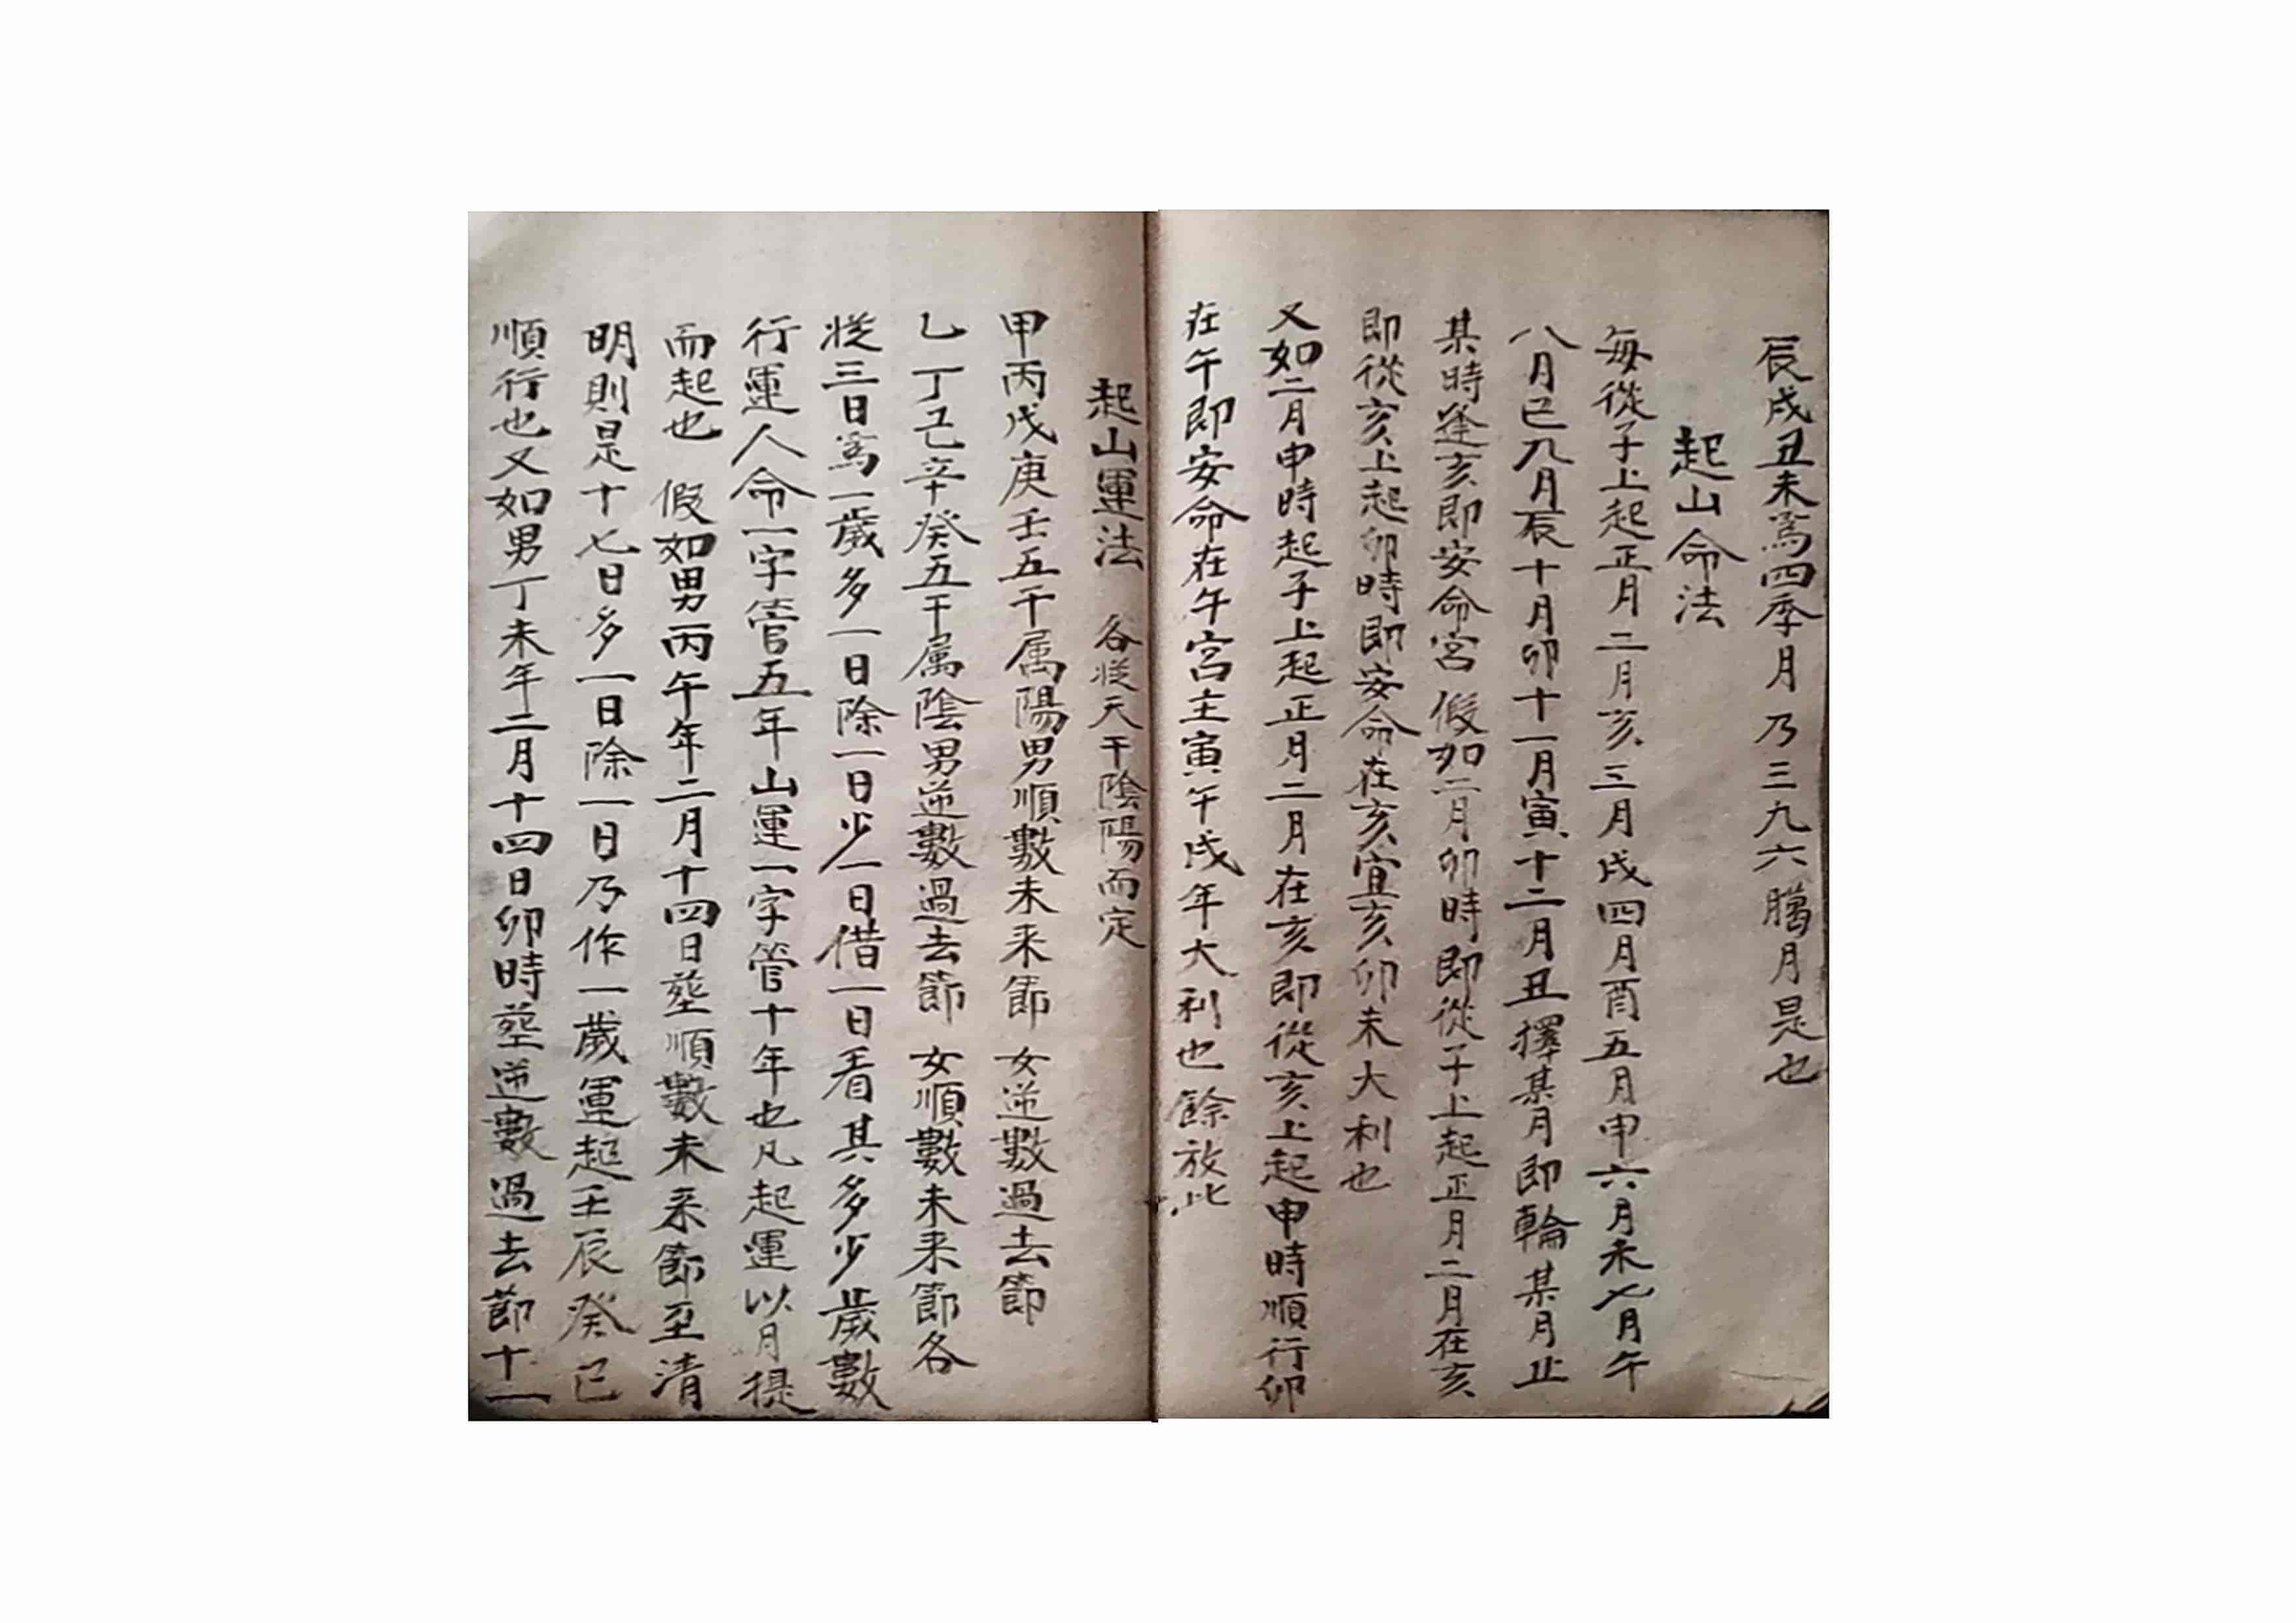 辰戌丑未為四季月乃三九六臈月是也
起山命法
每從子上起正月二月亥三月戌四月酉五月申六月未七月午
八月巳九月辰十月卯十一月寅十二月丑擇某月即輪某月止
某時逢亥即安命宮假如二月卯時即從子上起正月二月在亥
即從亥上起卯時即安命在亥宜亥卯未大利也
又如二月申時起子上起正月二月在亥即從亥上起申時順行卯
在午即安命在午宮主寅午戌年大利也餘放此
起山運法 各從天干陰陽而定
甲丙戊庚壬五干属陽男順數未来節 女逆數過去節
乙丁己辛癸五干属陰男逆數過去節 女順數未来節各
從三日為一歲多一日除一日少一日借一日看其多少歲數
行運人命一字管五年山運一字管十年也凡起運以月提
而起也 假如男丙午年二月十四日塟順數未来節至清
明則是十七日多一日除一日乃作一歲運起壬辰癸巳
順行也又如男丁未年二月十四日卯時塟逆數過去節十一